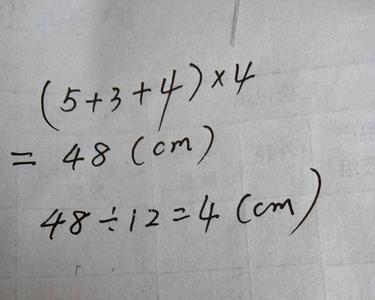 (5+3+4)×4
= 48 (cm)
48÷12=4 (cm)